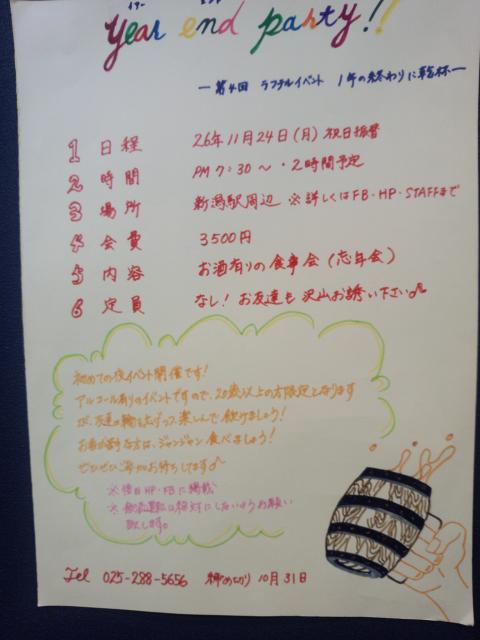 イヤー エンド
Year end party!!
ー第4回 ラフテルイベント 1年の終わりに乾杯ー
1 日程 26年11月24日(月)祝日振替
2 時間 PM7:30〜・2時間予定
3 場所 新潟駅周辺 ※詳しくはFB・HP・STAFFまで
4 会費 3500円
5 内容 お酒有りの食事会(忘年会)
6 定員 なし! お友達も沢山お誘い下さい♪
初めての夜イベント開催です!
アルコール有りのイベントですので、20歳以上の方限定となります
が、友達の輪を広げつつ楽しんで飲みましょう!
お酒が苦手な方は、ジャンジャン食べましょう!
ぜひぜひご参加お待ちしてます♪
※後日HP・FBに掲載
※飲酒運転は絶対にしないようお願い
致します。
Tel 025-288-5656 締めきり 10月31日